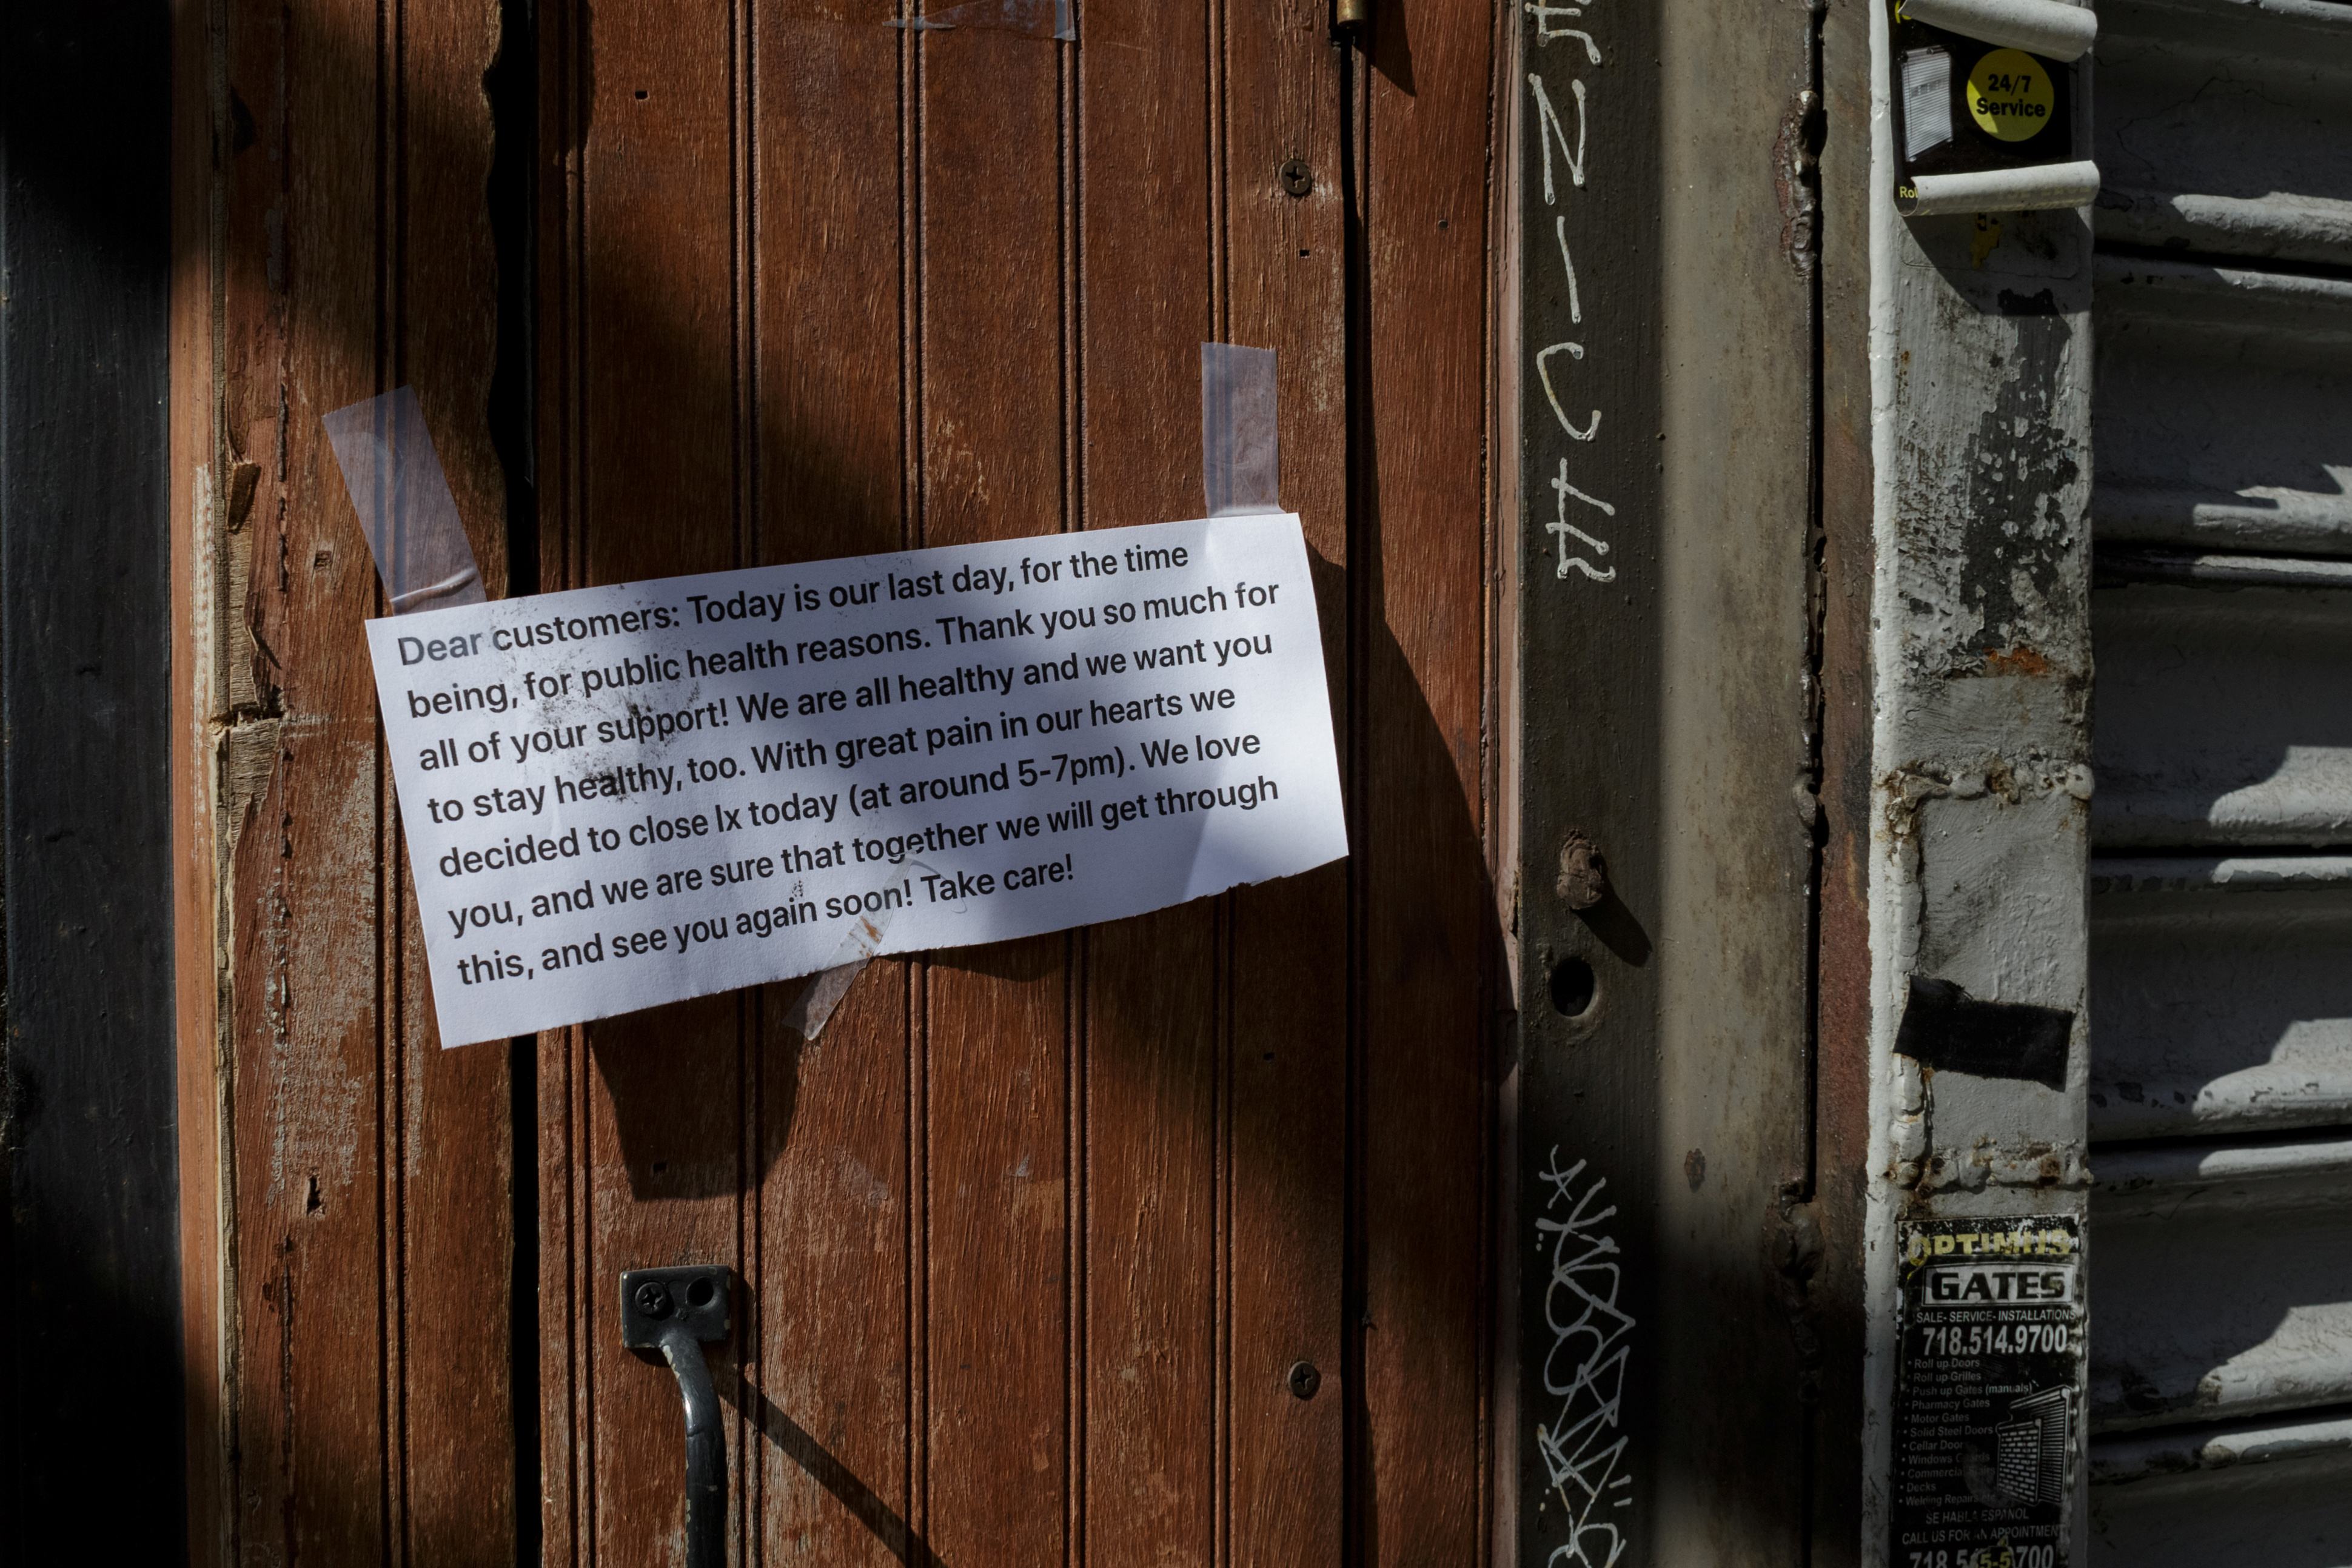 Dear customers: Today is our last day, for the time
being, for public health reasons. Thank you so much for
all of your support! We are all healthy and we want you
to stay healthy, too. With great pain in our hearts we
decided to close Ix today (at around 5-7pm). We love
you, and we are sure that together we will get through
this, and see you again soon! Take care!
24/7
Service
Rol
OPTIMUS
GATES
SALE- SERVICE- INSTALLATIONS
718.514.9700
• Roll up Doors
• Roll up Grilles
• Push up Gates (manuals)
• Pharmacy Gates
• Motor Gates
• Solid Steel Doors
• Cellar Door
• Windows
• Commercial
• Decks
• Welding Repairs
SE HABLA ESPAÑOL
CALL US FOR AN APPOINTMENT